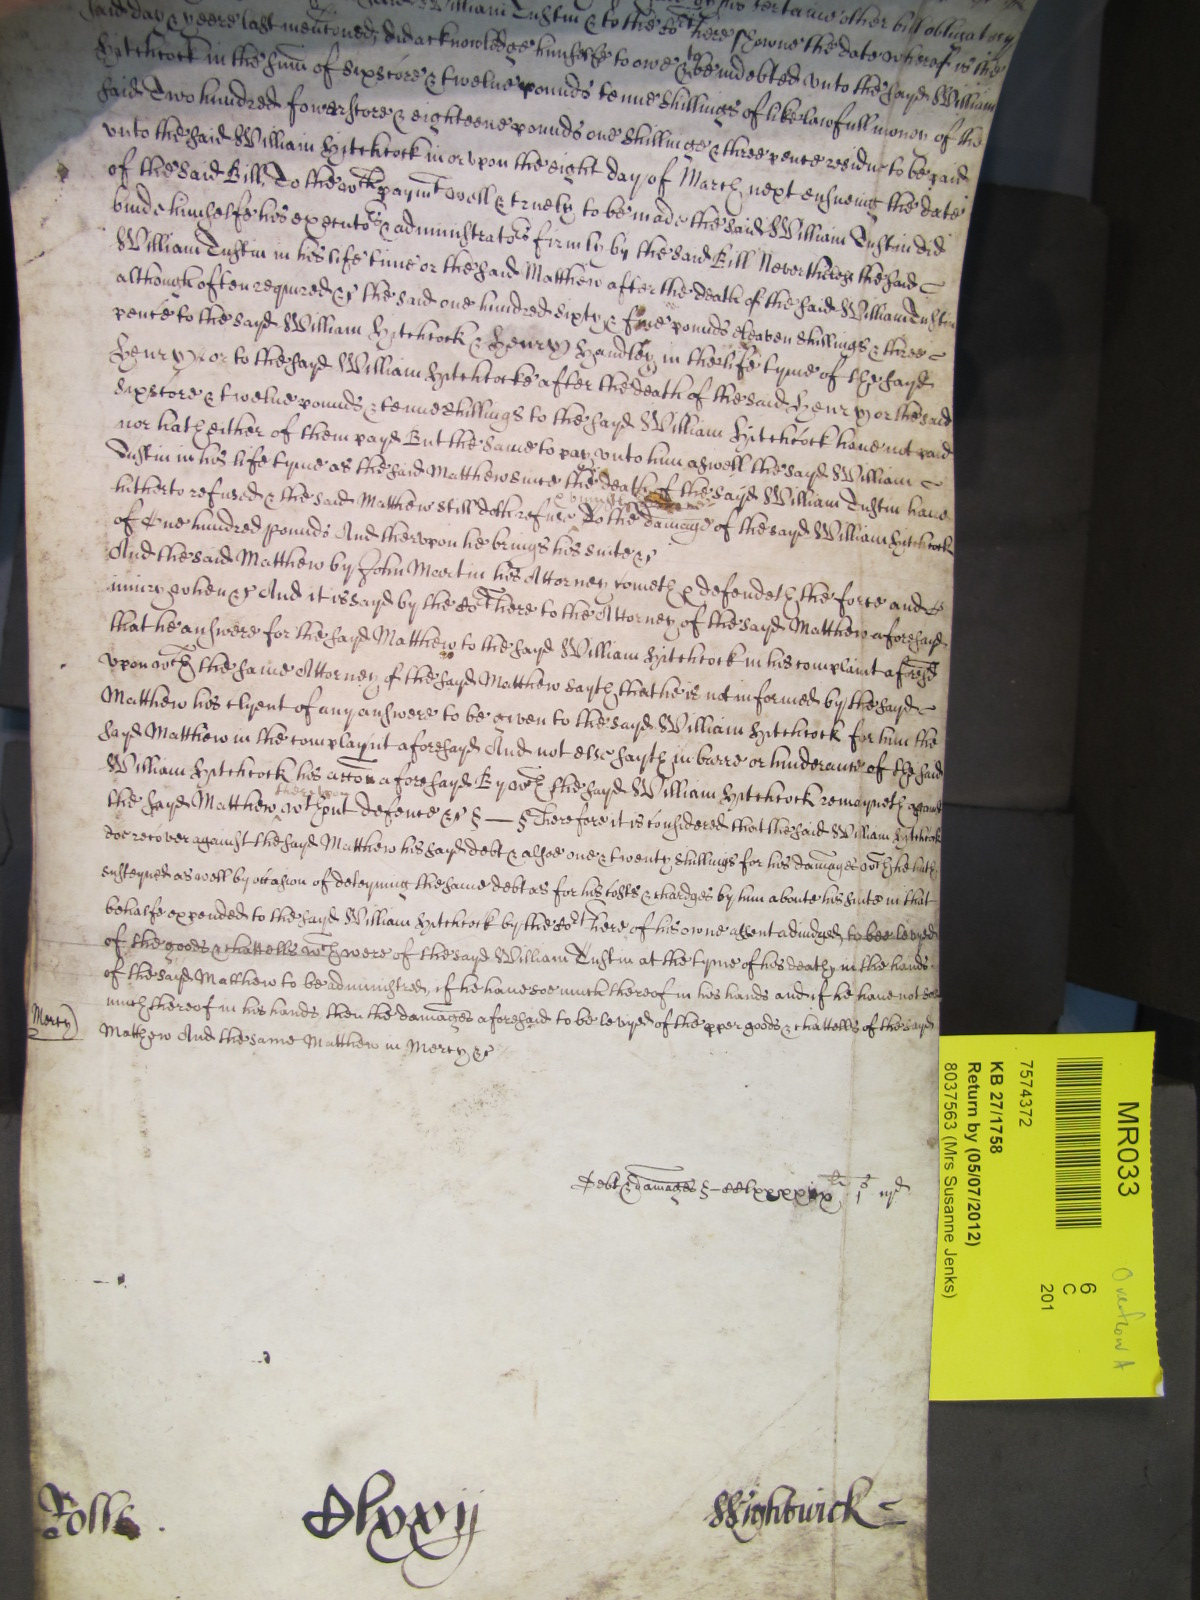 William Tustin & to the Cort here showne the date whereof is the certaine other bill obligatory
said day & yeere last mentioned, did acknowledge himselfe to owe & to be indebted unto the sayd William
Hitchcock in the sum̄ of sixscore & twelve pounds tenne shillings of like lawfull money of the
said Two hundred fowerscore & eighteene pounds one shillinge & three pence residue to be paid
unto the said William Hitchcock in or upon the eight day of March next ensueing the date
of the said Bill, To the wch paymt well & truely to be made the said William Tustin did
binde himselfe his executors & administrators firmly by the said Bill Neverthelesse the said
William Tustin in his life time or the said Matthew after the death of the said William Tustin
although often required &c the said one hundred sixty & five pounds eleaven shillings & three
pence to the sayd William Hitchcock & Henry Handley in the life tyme of the sayd
Henry or to the sayd William Hitchcocke after the death of the said Henry or the said
sixscore & twelve pounds & tenne shillings to the sayd William Hitchcock have not paid
nor hath either of them payd But the same to pay unto him aswell the sayd William
Tustin in his life tyme as the said Matthew since the death of the sayd William Tustin have
hitherto refused & the said Matthew still doth refuse To the damage of the sayd William Hitchcock
of One hundred pounds And thereupon he brings his suite &c
And the said Matthew by John Martin his Attorney cometh & defendeth the force and
iniury when &c And it is sayd by the Cort here to the Attorney of the sayd Matthew aforesayd
that he answere for the sayd Matthew to the sayd William Hitchcock in his complaint aforesd
upon wch the same Attorney of the sayd Matthew sayth that he is not informed by the sayd
Matthew his clyent of any answere to be given to the sayd William Hitchcock for him the
sayd Matthew in the complaynt aforesayd And not else sayth in barre or hinderance of the said
William Hitchcock his accon aforesayd By wch the sayd William Hitchcock remayneth against
the sayd Matthew thereupon wthout defence &c § — § Therefore it is considered that the said William Hitchcock
doe recover against the sayd Matthew his sayd debt & alsoe one & twenty shillings for his damages wch he hath
susteyned as well by occasion of deteyning the same debt as for his costs & chardges by him aboute his suite in that
behalfe expended to the sayd William Hitchcock by the Cort here of his owne assent adiudged, to bee levyed
of the goods & chattells wch were of the sayd William Tustin at the tyme of his death, in the hands
of the said Matthew to be administred, if he have soe much thereof in his hands and if he have not soe
much thereof in his hands, then the damages aforesaid to be levyed of the pper goods & chattells of the sayd
Mercy
Matthew And the same Matthew in Mercy &c
Debt & damages § — CClxxxxix li 1 s iijd
Rolls
Clxxij
Wightwick
MR033
Overflow A
6
C
201
7574372
KB 27/1758
Return by (05/07/2012)
8037563 (Mrs Susanne Jenks)